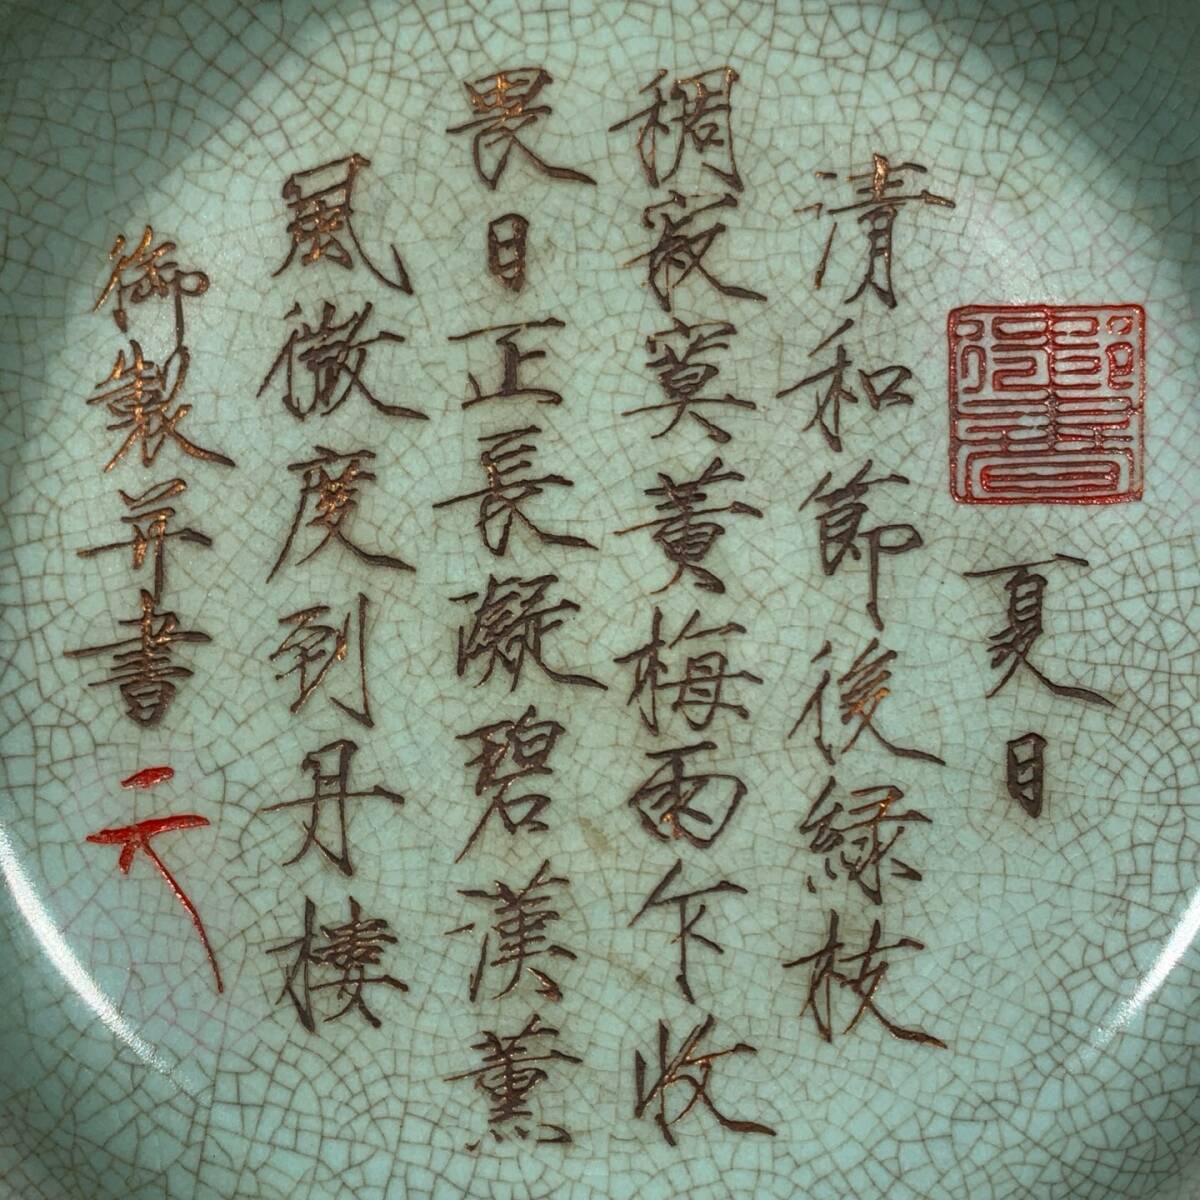 夏日
清和節後綠枝
稠寂寞黃梅雨乍收
畏日正長凝碧漢薰
風微度到丹樓
御製并書